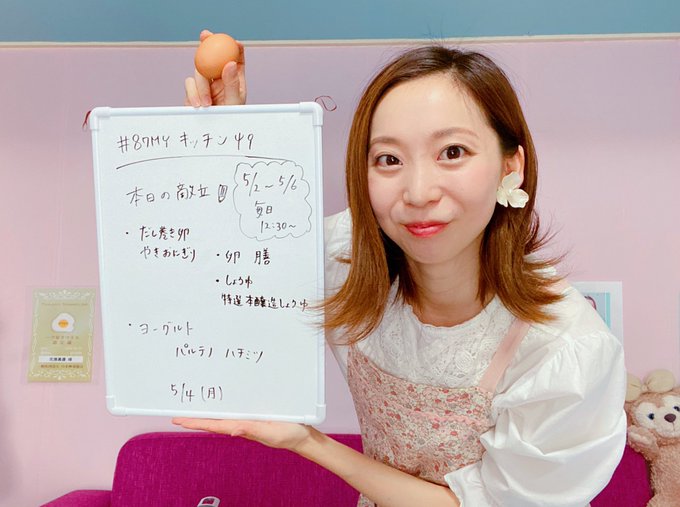 #87MY キッチン 49
本日の献立
5/2〜5/6
毎日
12:30〜
・だし巻き卵
やきおにぎり
・卵 膳
・しょうゆ
特選 本醸造しょうゆ
・ヨーグルト
パルテノ ハチミツ
5/4 (月)